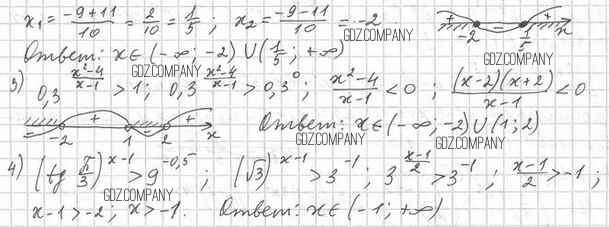 x₁ = (-9+11)/10 = 2/10 = 1/5 ; x₂ = (-9-11)/10 = -2 + -2 - 1/5 + x
GDZ.COMPANY
Ответ: x ∈ (-∞; -2) ∪ (1/5; +∞)
GDZ.COMPANY
3) 0,3^((x²-4)/(x-1)) > 1; 0,3^((x²-4)/(x-1)) > 0,3⁰; (x²-4)/(x-1) < 0 ; ((x-2)(x+2))/(x-1) < 0
GDZ.COMPANY
- -2 + 1 - 2 + x Ответ: x ∈ (-∞; -2) ∪ (1; 2)
GDZ.COMPANY
4) (tg π/3)^(x-1) > 9^(-0,5) ; (√3)^(x-1) > 3⁻¹; 3^((x-1)/2) > 3⁻¹; (x-1)/2 > -1 ;
GDZ.COMPANY
x-1 > -2; x > -1. Ответ: x ∈ (-1; +∞)
GDZ.COMPANY